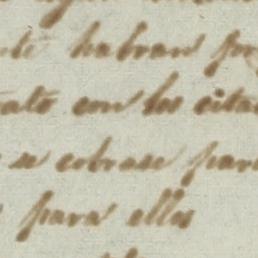 habran por
con los cita
se cobrase para
para ellos